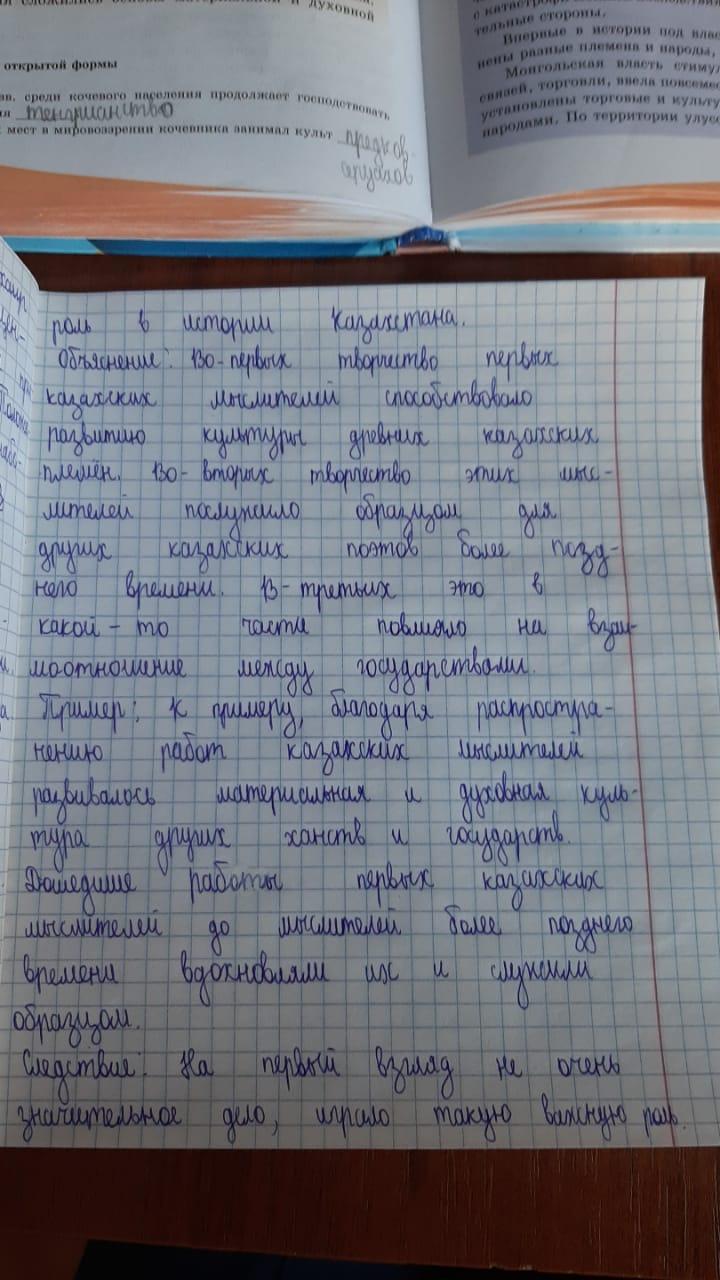 духовной
открытой формы
среди кочевного населения продолжает господствовать
тенгрианство
мест в мировоззрении кочевника занимал культ предков-
аруахов
тельные стороны.
Впервые в истории под
нены разные племена и народы,
Монгольская власть
связей, торговли, ввела
установлены торговые и
народами. По территории
роль в истории Казахстана.
Объяснение: Во-первых творчество первых
казахских мыслителей способствовало
развитию культуры древних казахских
племён. Во-вторых творчество этих мыс-
лителей послужило образцом для
других казахских поэтов более позд-
него времени. В-третьих это в
какой-то части повлияло на взаи-
моотношение между государствами.
Пример: К примеру, благодаря распростра-
нению работ казахских мыслителей
развивалось материальная и духовная куль-
тура других ханств и государств.
Дошедшие работы первых казахских
мыслителей до мыслителей более позднего
времени вдохновляли их и служили
образцом.
Следствие: На первый взгляд не очень
значительное дело, играло такую важную роль.